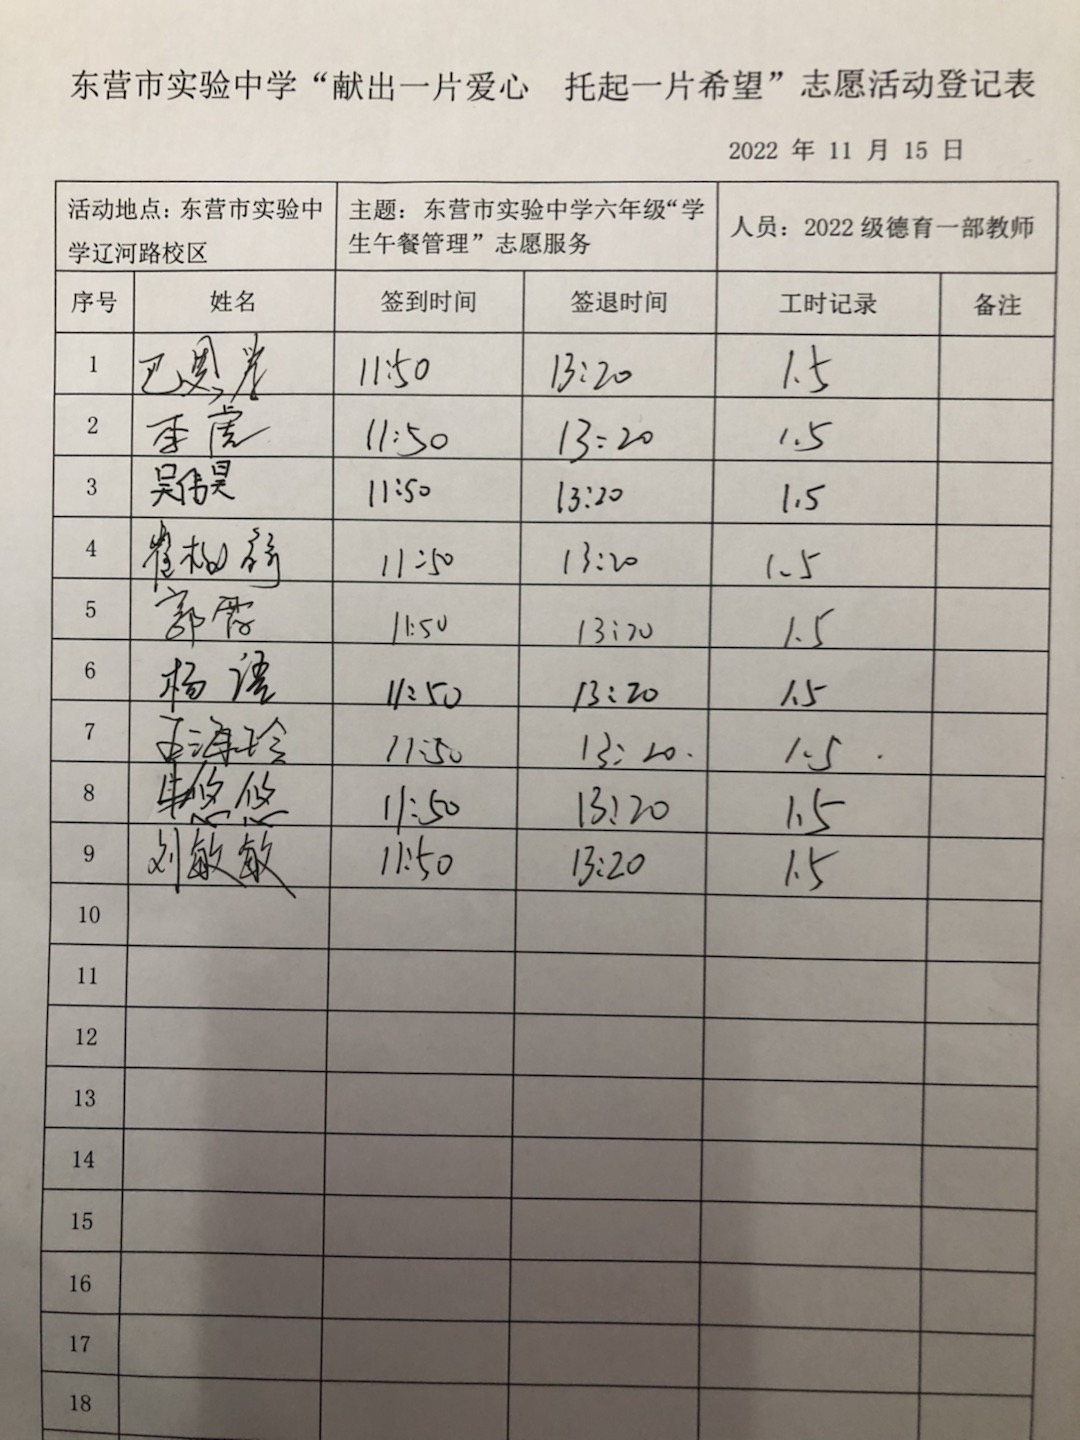 东营市实验中学“献出一片爱心 托起一片希望”志愿活动登记表
2022 年 11 月 15 日
活动地点：东营市实验中
学辽河路校区
主题：东营市实验中学六年级“学
生午餐管理”志愿服务
人员：2022 级德育一部教师
序号 姓名 签到时间 签退时间 工时记录 备注
1 巴 11:50 13:20 1.5
2 李虎 11:50 13:20 1.5
3 吴伟昊 11:50 13:20 1.5
4 崔 11:50 13:20 1.5
5 郭霞 11:50 13:20 1.5
6 杨 11:50 13:20 1.5
7 王海玲 11:50 13:20. 1.5 .
8 朱悠悠 11:50 13:20 1.5
9 刘敏敏 11:50 13:20 1.5
10
11
12
13
14
15
16
17
18